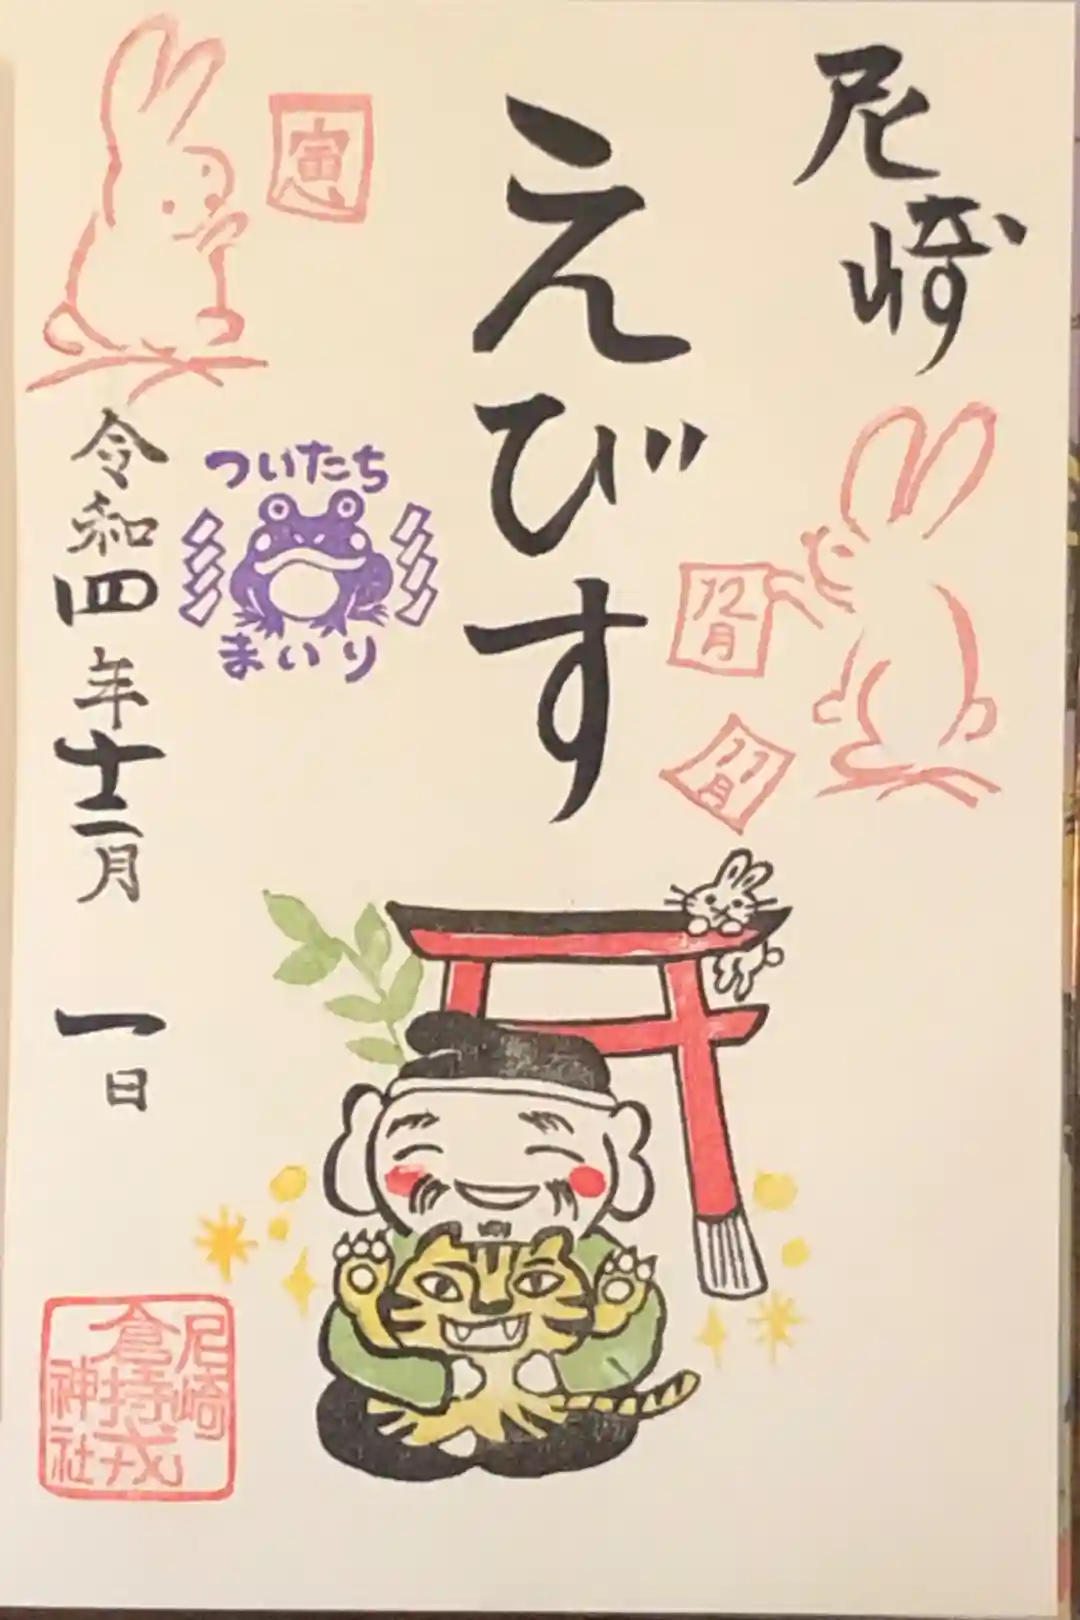 尼崎
えびす
12月
11月
ついたち
まいり
令和四年十二月
一日
尼崎
倉持戎
神社